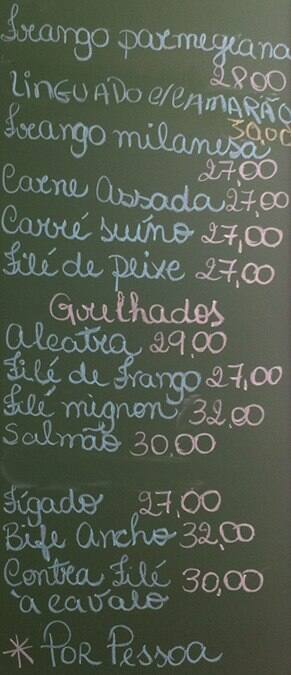 Frango parmegiana
28,00
LINGUADO C/CAMARÃO
30,00
Frango milanesa
27,00
Carne Assada 27,00
Carré suíno 27,00
Filé de peixe 27,00
Grelhados
Alcatra 29,00
Filé de Frango 27,00
Filé mignon 32,00
Salmão 30,00
Fígado 27,00
Bife Ancho 32,00
Contra Filé 30,00
à cavalo
* POR PESSOA